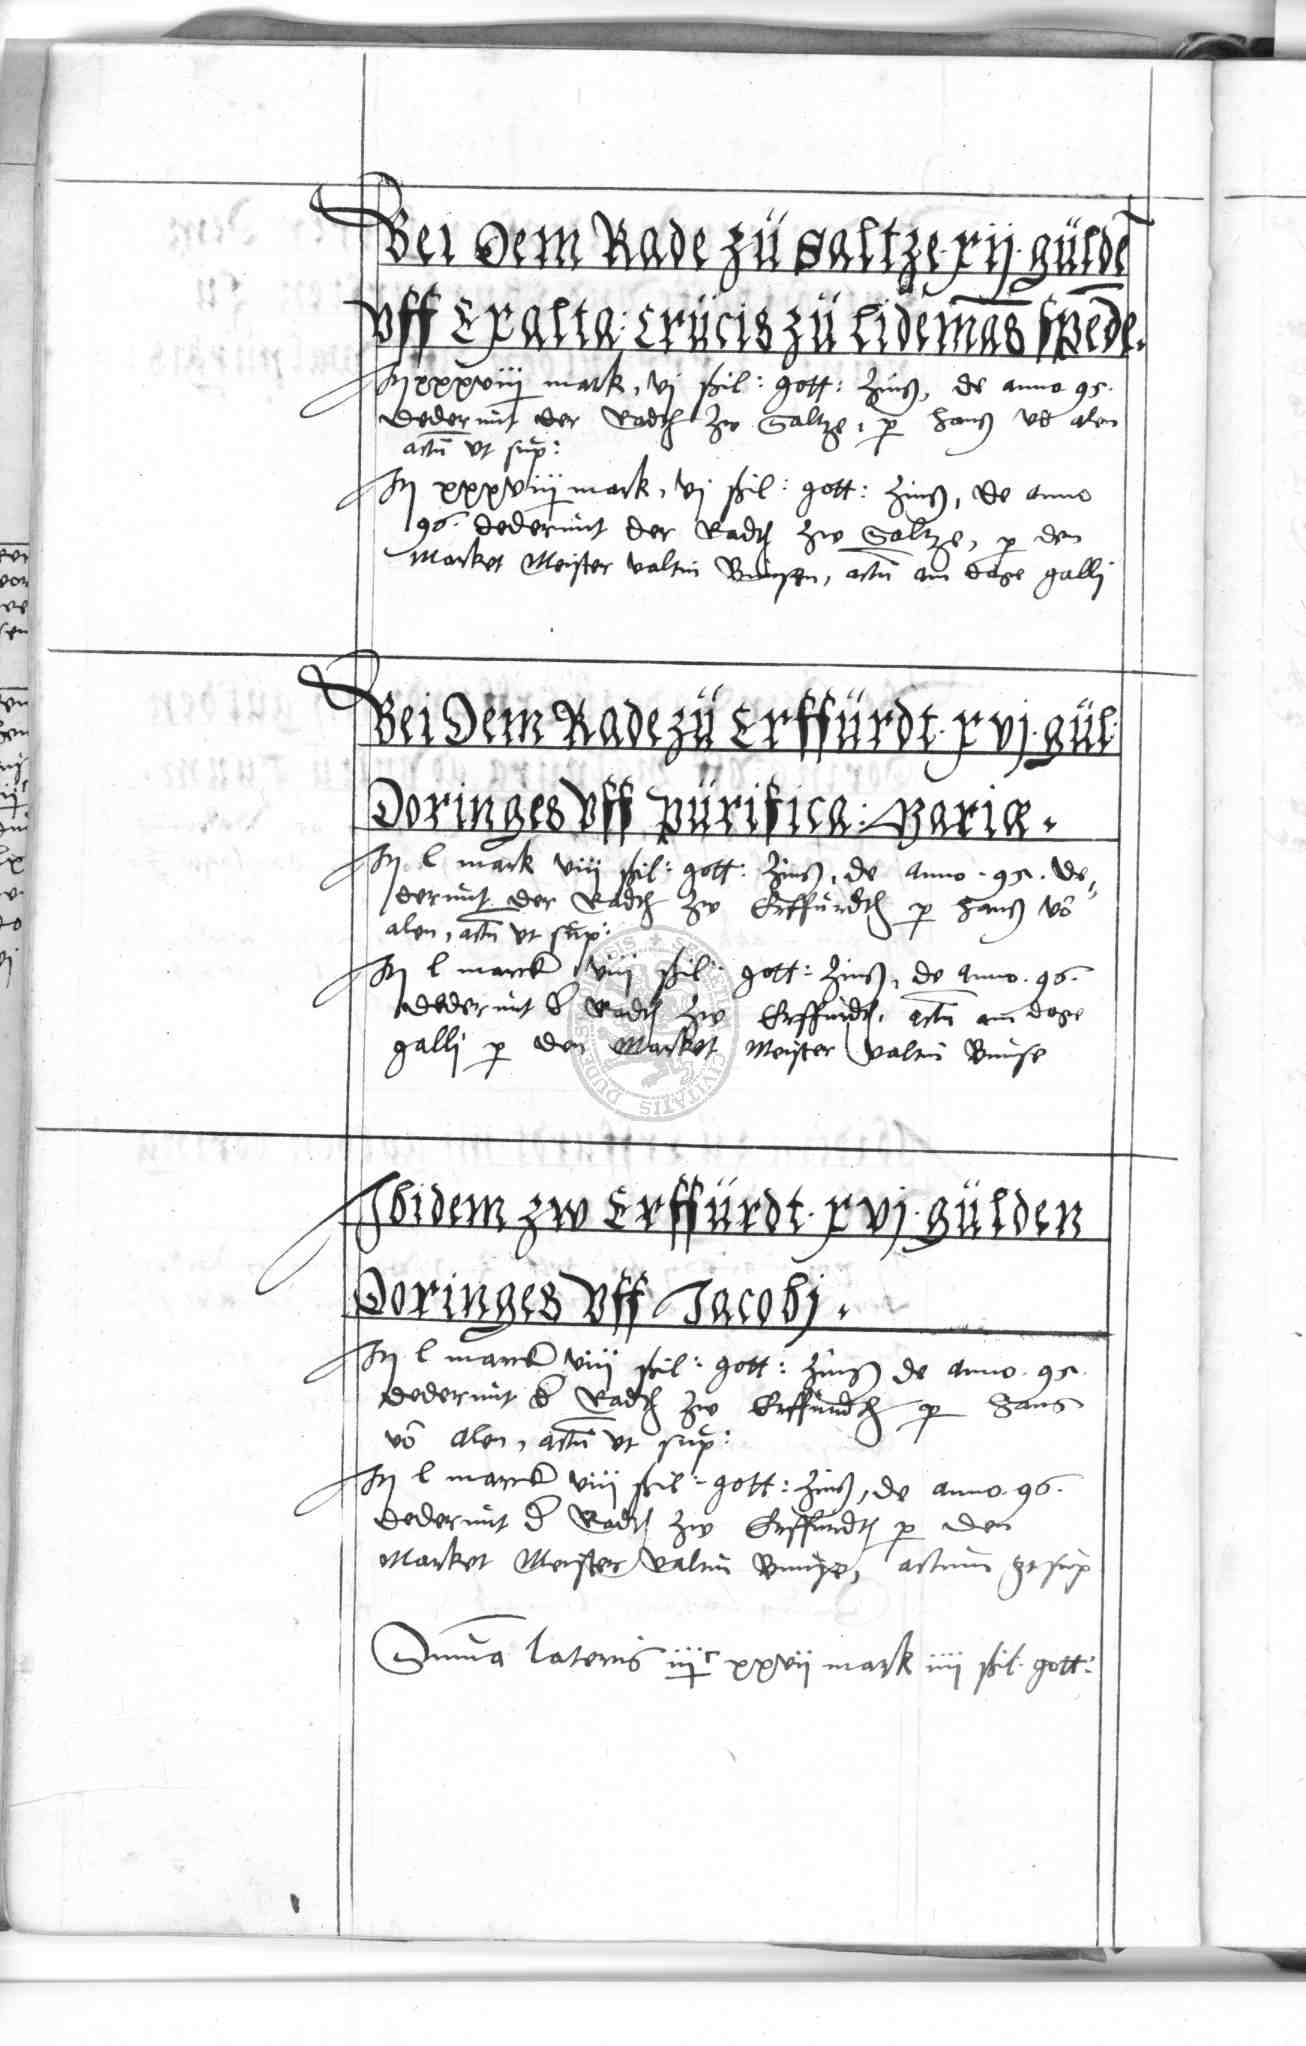 Bei Dem Rade zü Saltze · xij · gülde
vff Exalta: Crücis zü lidemas spede.
It xxxviij mark, vj ſzil: gott: Zinß, de anno 95.
dederunt der Radth zw Saltze, p hanß vo alen
actu vt sup:
It xxxviij mark, vj ſzil: gott: Zinß, de anno
96. dederunt der Radth zw Saltze, p den
Market Meister valtin Bunsen, actu am dage galli
Bei Dem Rade zü Erffürdt · xvj · gül:
Doringes vff pürifica: Mariæ.
It l mark viij ſzil: gott: Zinß, de anno · 95 · de=
derunt der Radth zw Erffurdth p hanß vo
alen, actu vt sup:
It l marck viij ſzil: gott: Zinß, de Anno · 96 ·
dederunt d Radth zw Erffurdth, actu am dage
galli p den Market Meister valtin Bunse
Ibidem zw Erffürdt · xvj · gülden
Doringes vff Jacobj.
It l marck viij ſzil: gott: Zinß de anno · 95 ·
dederunt d Radth zw Erffurdth p Hans
vo alen, actu vt sup:
It l marck viij ſzil: gott: Zinß, de anno · 96 ·
dederunt d Radth zw Erffurdth p den
Market Meister valtin Bunse, actum vt sup
Suma lateris iijc xxvij mark iiij ſzil: gott: